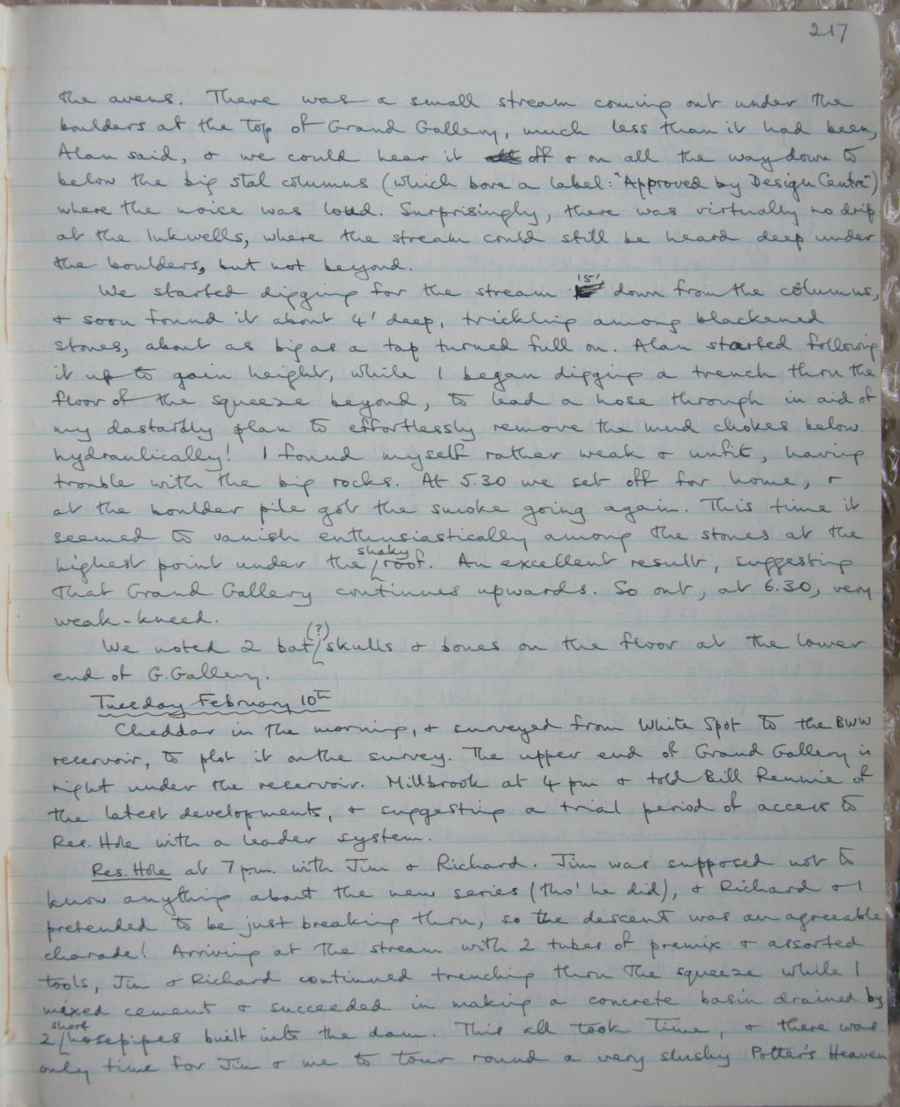 217
the avens. There was a small stream coming out under the
boulders at the top of Grand Gallery, much less than it had been,
Alan said, & we could hear it off & on all the way down to
below the big stal columns (which bore a label: "Approved by Design Centre")
where the noise was loud. Surprisingly, there was virtually no drip
at the Inkwells, where the stream could still be heard deep under
the boulders, but not beyond.
We started digging for the stream 15' down from the columns,
& soon found it about 4' deep, trickling among blackened
stones, about as big as a tap turned full on. Alan started following
it up to gain height, while I began digging a trench thru the
floor of the squeeze beyond, to lead a hose through in aid of
my dastardly plan to effortlessly remove the mud chokes below
hydraulically! I found myself rather weak & unfit, having
trouble with the big rocks. At 5.30 we set off for home, &
at the boulder pile got the smoke going again. This time it
seemed to vanish enthusiastically among the stones at the
highest point under the shaky roof. An excellent result, suggesting
that Grand Gallery continues upwards. So out, at 6.30, very
weak-kneed.
We noted 2 bat (?) skulls & bones on the floor at the lower
end of G. Gallery.
Tuesday February 10th
Cheddar in the morning, & surveyed from White Spot to the BWW
reservoir, to plot it on the survey. The upper end of Grand Gallery is
right under the reservoir. Millbrook at 4 pm & told Bill Rennie of
the latest developments, & suggesting a trial period of access to
Res. Hole with a leader system.
Res. Hole at 7 pm. with Jim & Richard. Jim was supposed not to
know anything about the new series (tho' he did), & Richard & I
pretended to be just breaking thru, so the descent was an agreeable
charade! Arriving at the stream with 2 tubes of premix & assorted
tools, Jim & Richard continued trenching thru the squeeze while I
mixed cement & succeeded in making a concrete basin drained by
2 short hosepipes built into the dam. This all took time, & there was
only time for Jim & me to tour round a very slushy Potter's Heaven